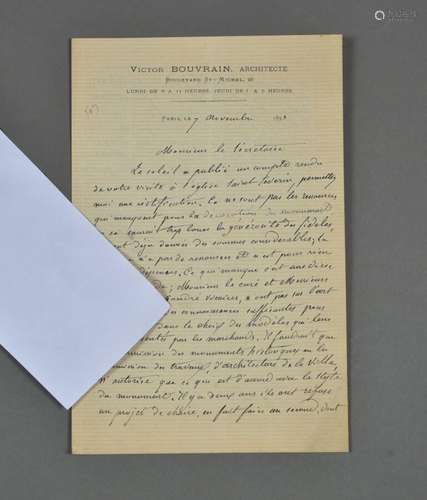 VICTOR BOUVRAIN, ARCHITECTE
BOULEVARD St-MICHEL,
LUNDI DE 9 A 11 HEURES, JEUDI DE 1 A 3 HEURES
PARIS, LE 7 Novembre 189
Monsieur le Secretaire
Le soleil a publié un compte rendu
de votre visite à l'église Saint Séverin, permettez
moi une rectification. Ce ne sont pas les ressources
qui manquent pour la décoration du monument
on ne saurait trop louer la générosité des fidèles,
ont déjà donné des sommes considérables, la
a pas de ressources et n'est pour rien
dépenses. Ce qui manque
Monsieur le curé et Messieurs
vicaires, n'ont pas sur l'art
connaissances suffisantes pour
dans le choix des modèles qui leur
par les marchands. Il faudrait que
mission des monuments historiques ou la
mission des travaux d'architecture de la Ville
n'autorise que ce qui est d'accord avec le style
du monument. Il y a deux ans ils ont refusé
un projet de chaire, en fait faire un second, dont